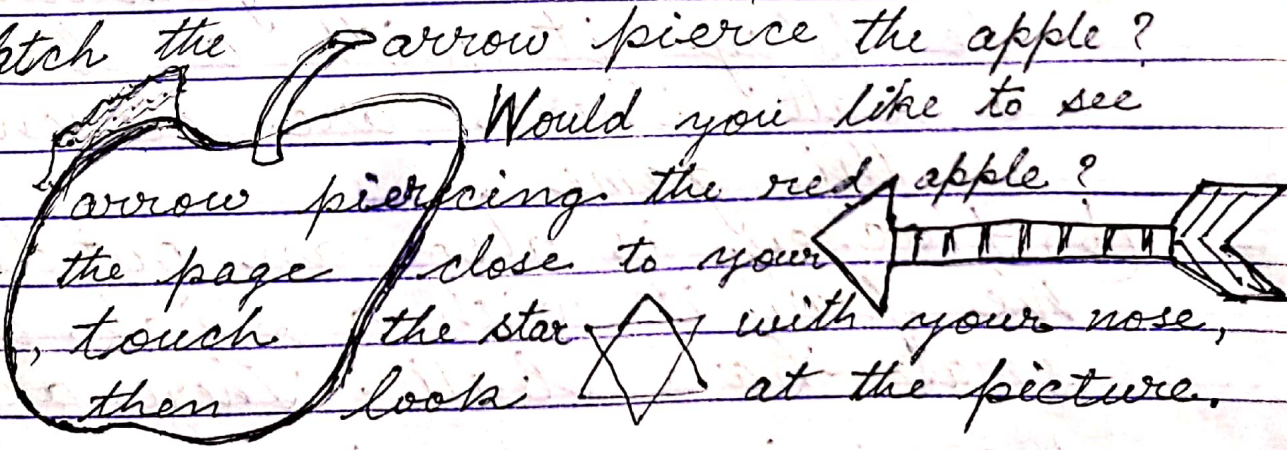 atch the arrow pierce the apple?
Would you like to see
arrow piercing the red apple?
the page close to your
, touch the star with your nose,
then look at the picture.